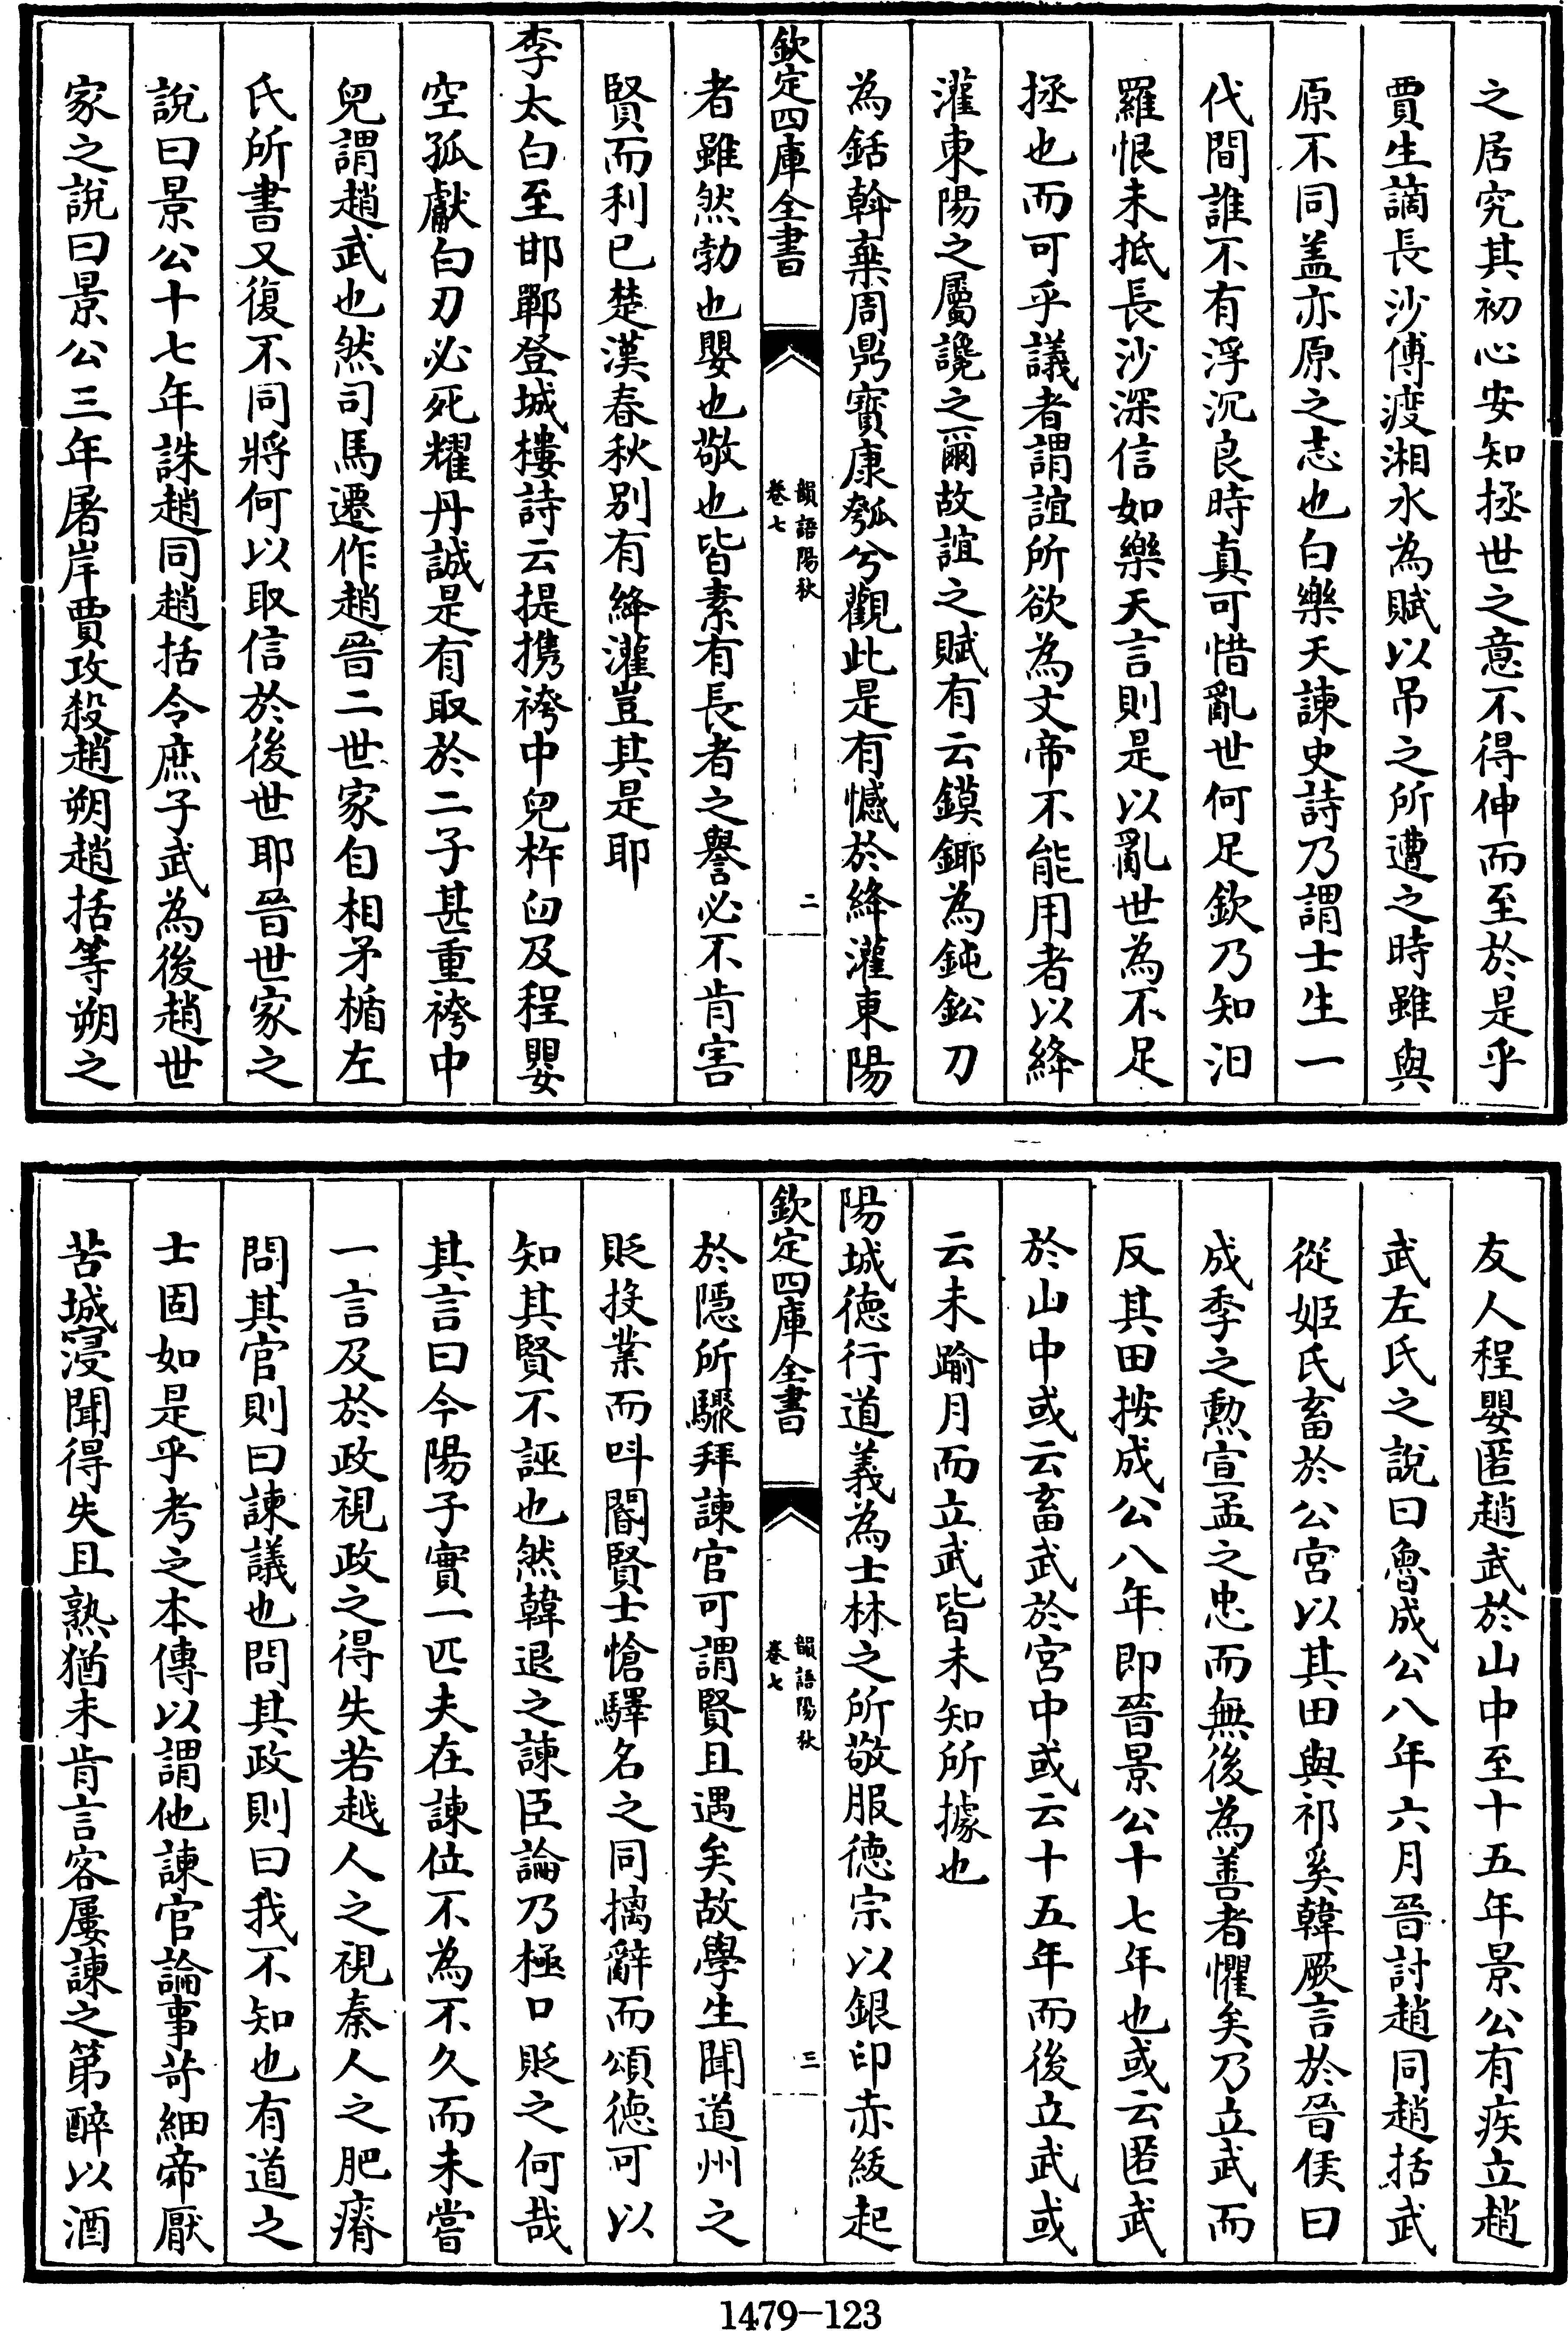 之居究其初心安知拯世之意不得伸而至於是乎
賈生謫長沙傅渡湘水為賦以吊之所遭之時雖與
原不同盖亦原之志也白樂天諫史詩乃謂士生一
代間誰不有浮沉良時真可惜亂世何足欽乃知汨
羅恨未抵長沙深信如樂天言則是以亂世為不足
拯也而可乎議者謂誼所欲為文帝不能用者以絳
灌東陽之屬讒之爾故誼之賦有云鏌鋣為鈍鈆刀
為銛斡棄周鼎寳康瓠兮觀此是有憾於絳灌東陽
欽定四庫全書
韻語陽秋
卷七
二
者雖然勃也嬰也敬也皆素有長者之譽必不肯害
賢而利已楚漢春秋别有絳灌豈其是耶
李太白至邯鄲登城樓詩云提携袴中兒杵臼及程嬰
空孤獻白刃必死耀丹誠是有取於二子甚重袴中
兒謂趙武也然司馬遷作趙晉二世家自相矛楯左
氏所書又復不同將何以取信於後世耶晉世家之
說曰景公十七年誅趙同趙括令庶子武為後趙世
家之說曰景公三年屠岸賈攻殺趙朔趙括等朔之
友人程嬰匿趙武於山中至十五年景公有疾立趙
武左氏之說曰魯成公八年六月晉討趙同趙括武
從姬氏畜於公宮以其田與祁奚韓厥言於晉侯曰
成季之勲宣孟之忠而無後為善者懼矣乃立武而
反其田按成公八年即晉景公十七年也或云匿武
於山中或云畜武於宮中或云十五年而後立武或
云未踰月而立武皆未知所據也
陽城德行道義為士林之所敬服德宗以銀印赤紱起
欽定四庫全書
韻語陽秋
卷七
三
於隱所驟拜諫官可謂賢且遇矣故學生聞道州之
貶投業而呌閽賢士愴驛名之同摛辭而頌徳可以
知其賢不誣也然韓退之諫臣論乃極口貶之何哉
其言曰今陽子實一匹夫在諫位不為不久而未嘗
一言及於政視政之得失若越人之視秦人之肥瘠
問其官則曰諫議也問其政則曰我不知也有道之
士固如是乎考之本傳以謂他諫官論事苛細帝厭
苦城寖聞得失且熟猶未肯言客屢諫之第醉以酒
1479-123